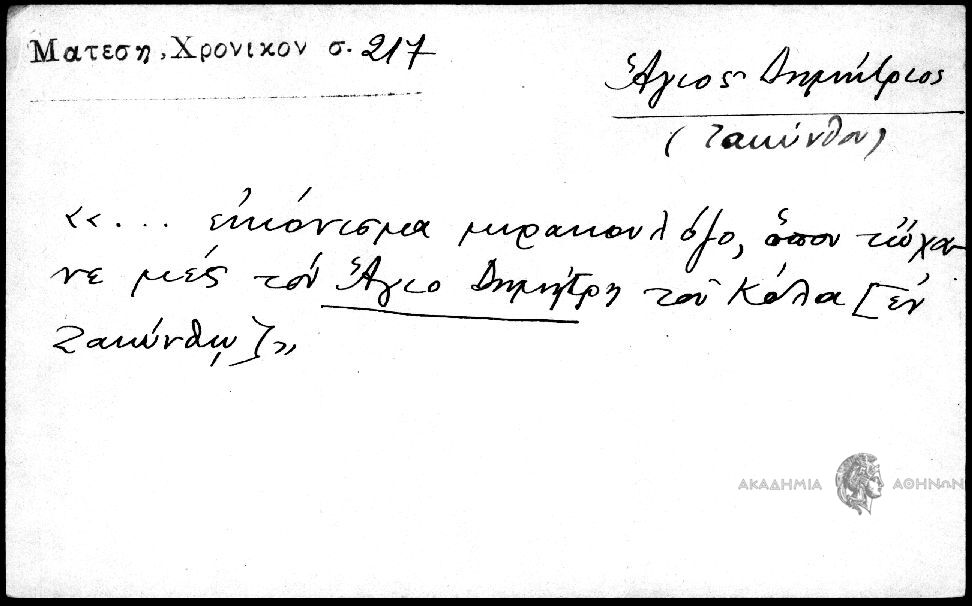 Ματεση, Χρονικον σ. 217
Ἅγιος Δημήτριος
(Ζακύνθου)
«... εἰκόνισμα μιρακουλόζο, ὅπου τὤχα-
νε μὲς τὸν Ἅγιο Δημήτρη τοῦ Κόλα [ἐν
Ζακύνθῳ]»
ΑΚΑΔΗΜΙΑ ΑΘΗΝΩΝ